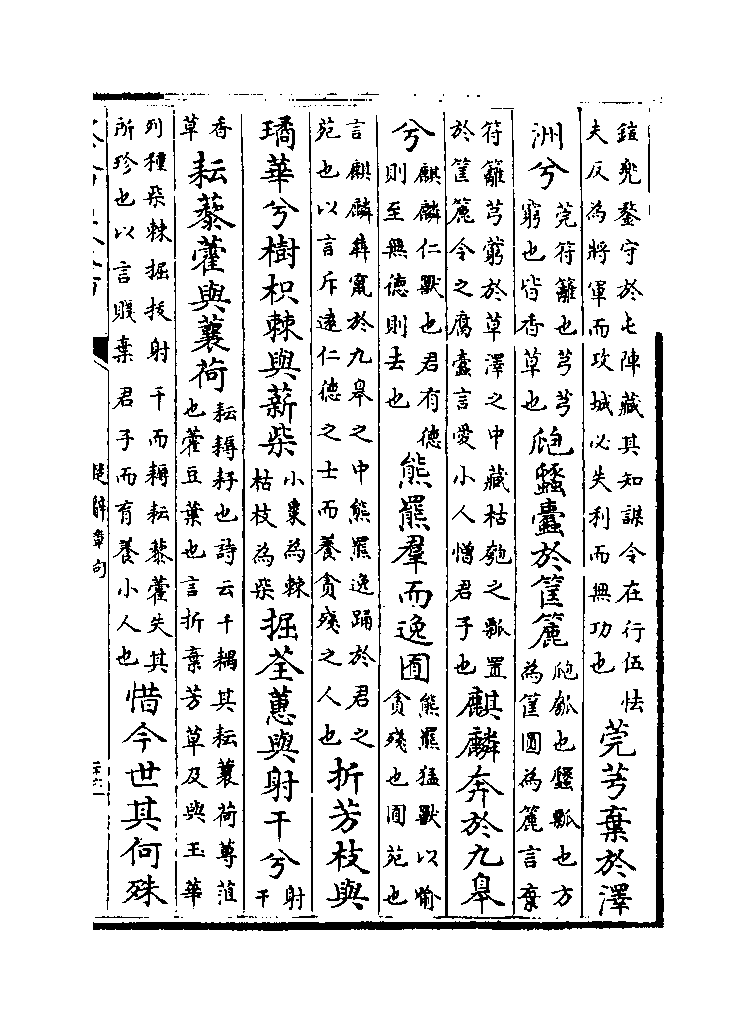 鎧兜鍪守於屯陣藏其知謀令在行伍怯
夫反為將軍而攻城必失利而無功也
莞芎棄於澤
洲兮
莞符籬也芎芎
窮也皆香草也
瓟蠡蠹於筐簏
瓟瓠也蠡瓢也方
為筐圓為簏言棄
符籬芎窮於草澤之中藏枯瓟之瓢置
於筐簏令之腐蠹言愛小人憎君子也
麒麟奔於九皋
兮
麒麟仁獸也君有德
則至無德則去也
熊羆羣而逸囿
熊羆猛獸以喻
貪殘也囿苑也
言麒麟奔竄於九皋之中熊羆逸踊於君之
苑也以言斥遠仁德之士而養貪殘之人也
折芳枝與
璚華兮樹枳棘與薪柴
小棗為棘
枯枝為柴
掘荃蕙與射干兮
射
干
香
草
耘藜藿與蘘荷
耘耨耔也詩云千耦其耘蘘荷蓴菹
也藿豆葉也言折棄芳草及與玉華
列種柴棘掘拔射干而耨耘藜藿失其
所珍也以言賤棄君子而有養小人也
惜今世其何殊
楚辭章句